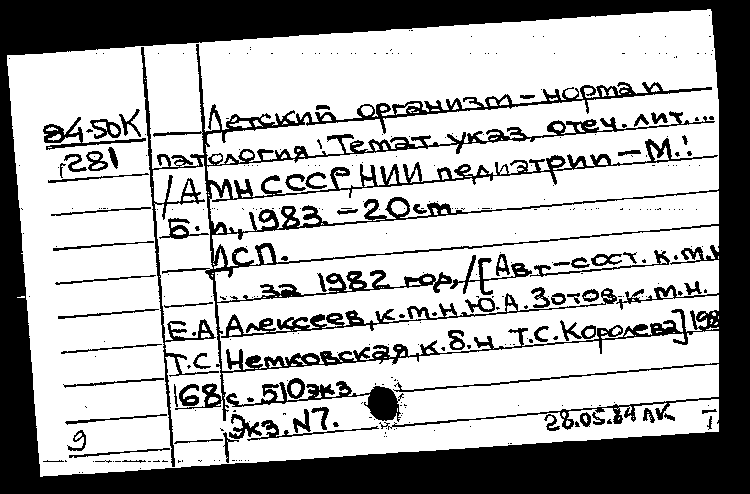 84-50К
281
Детский организм – норма и
патология: Темат. указ. отеч. лит....
/АМН СССР, НИИ педиатрии. – М.:
Б. и., 1983. – 20 см.
ДСП.
... за 1982 год,/[Авт-сост. к.м.н
Е.А.Алексеев, к.м.н. Ю.А.Зотов, к.м.н.
Т.С.Немковская, к.б.н. Т.С.Королева] 198
168 с. 510 экз.
Экз. N7.
28.05.84 ЛК
9